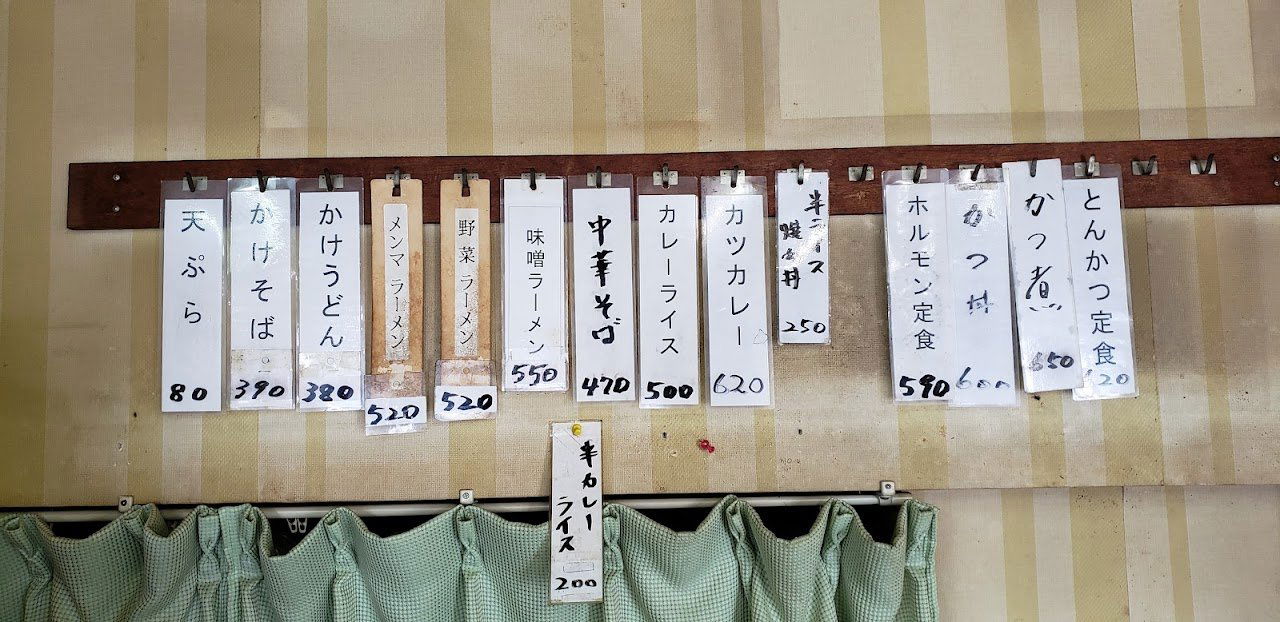 天ぷら
80
かけそば
390
かけうどん
380
メンマ ラーメン
520
野菜 ラーメン
520
味噌ラーメン
550
中華そば
470
カレーライス
500
カツカレー
620
半ライス
丼
250
ホルモン定食
590
かつ丼
600
かつ煮
650
とんかつ定食
20
半カレー
ライス
200